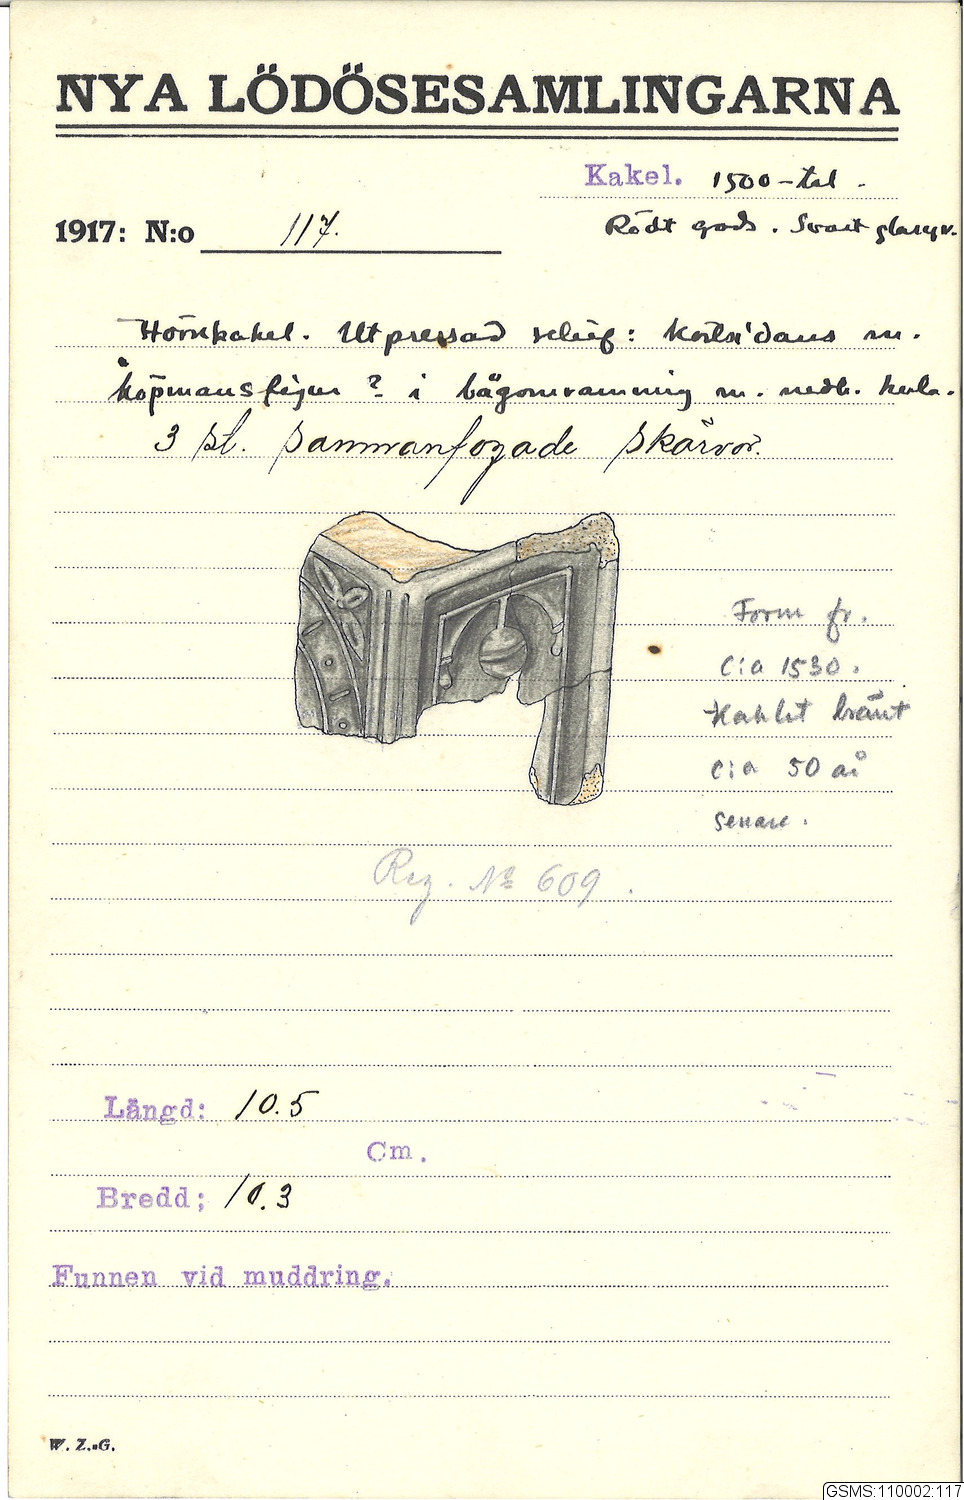 NYA LÖDÖSESAMLINGARNA
Kakel. 1500-tal.
1917: N:o 117.
Rödt gods. Svart glasyr.
Hörnkakel. Utpressad relief: Kortsidans m.
köpmansfigur? i bågomramning m. nedh. kula.
3 st. sammanfogade skärvor.
Form fr.
c:a 1530.
Kaklet bränt
c:a 50 år
senare.
Reg. No 609.
Längd: 10.5
Cm.
Bredd; 10.3
Funnen vid muddring.
W. Z.-G.
GSMS:110002:117